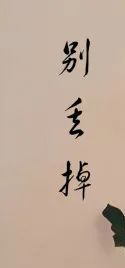 别丢掉